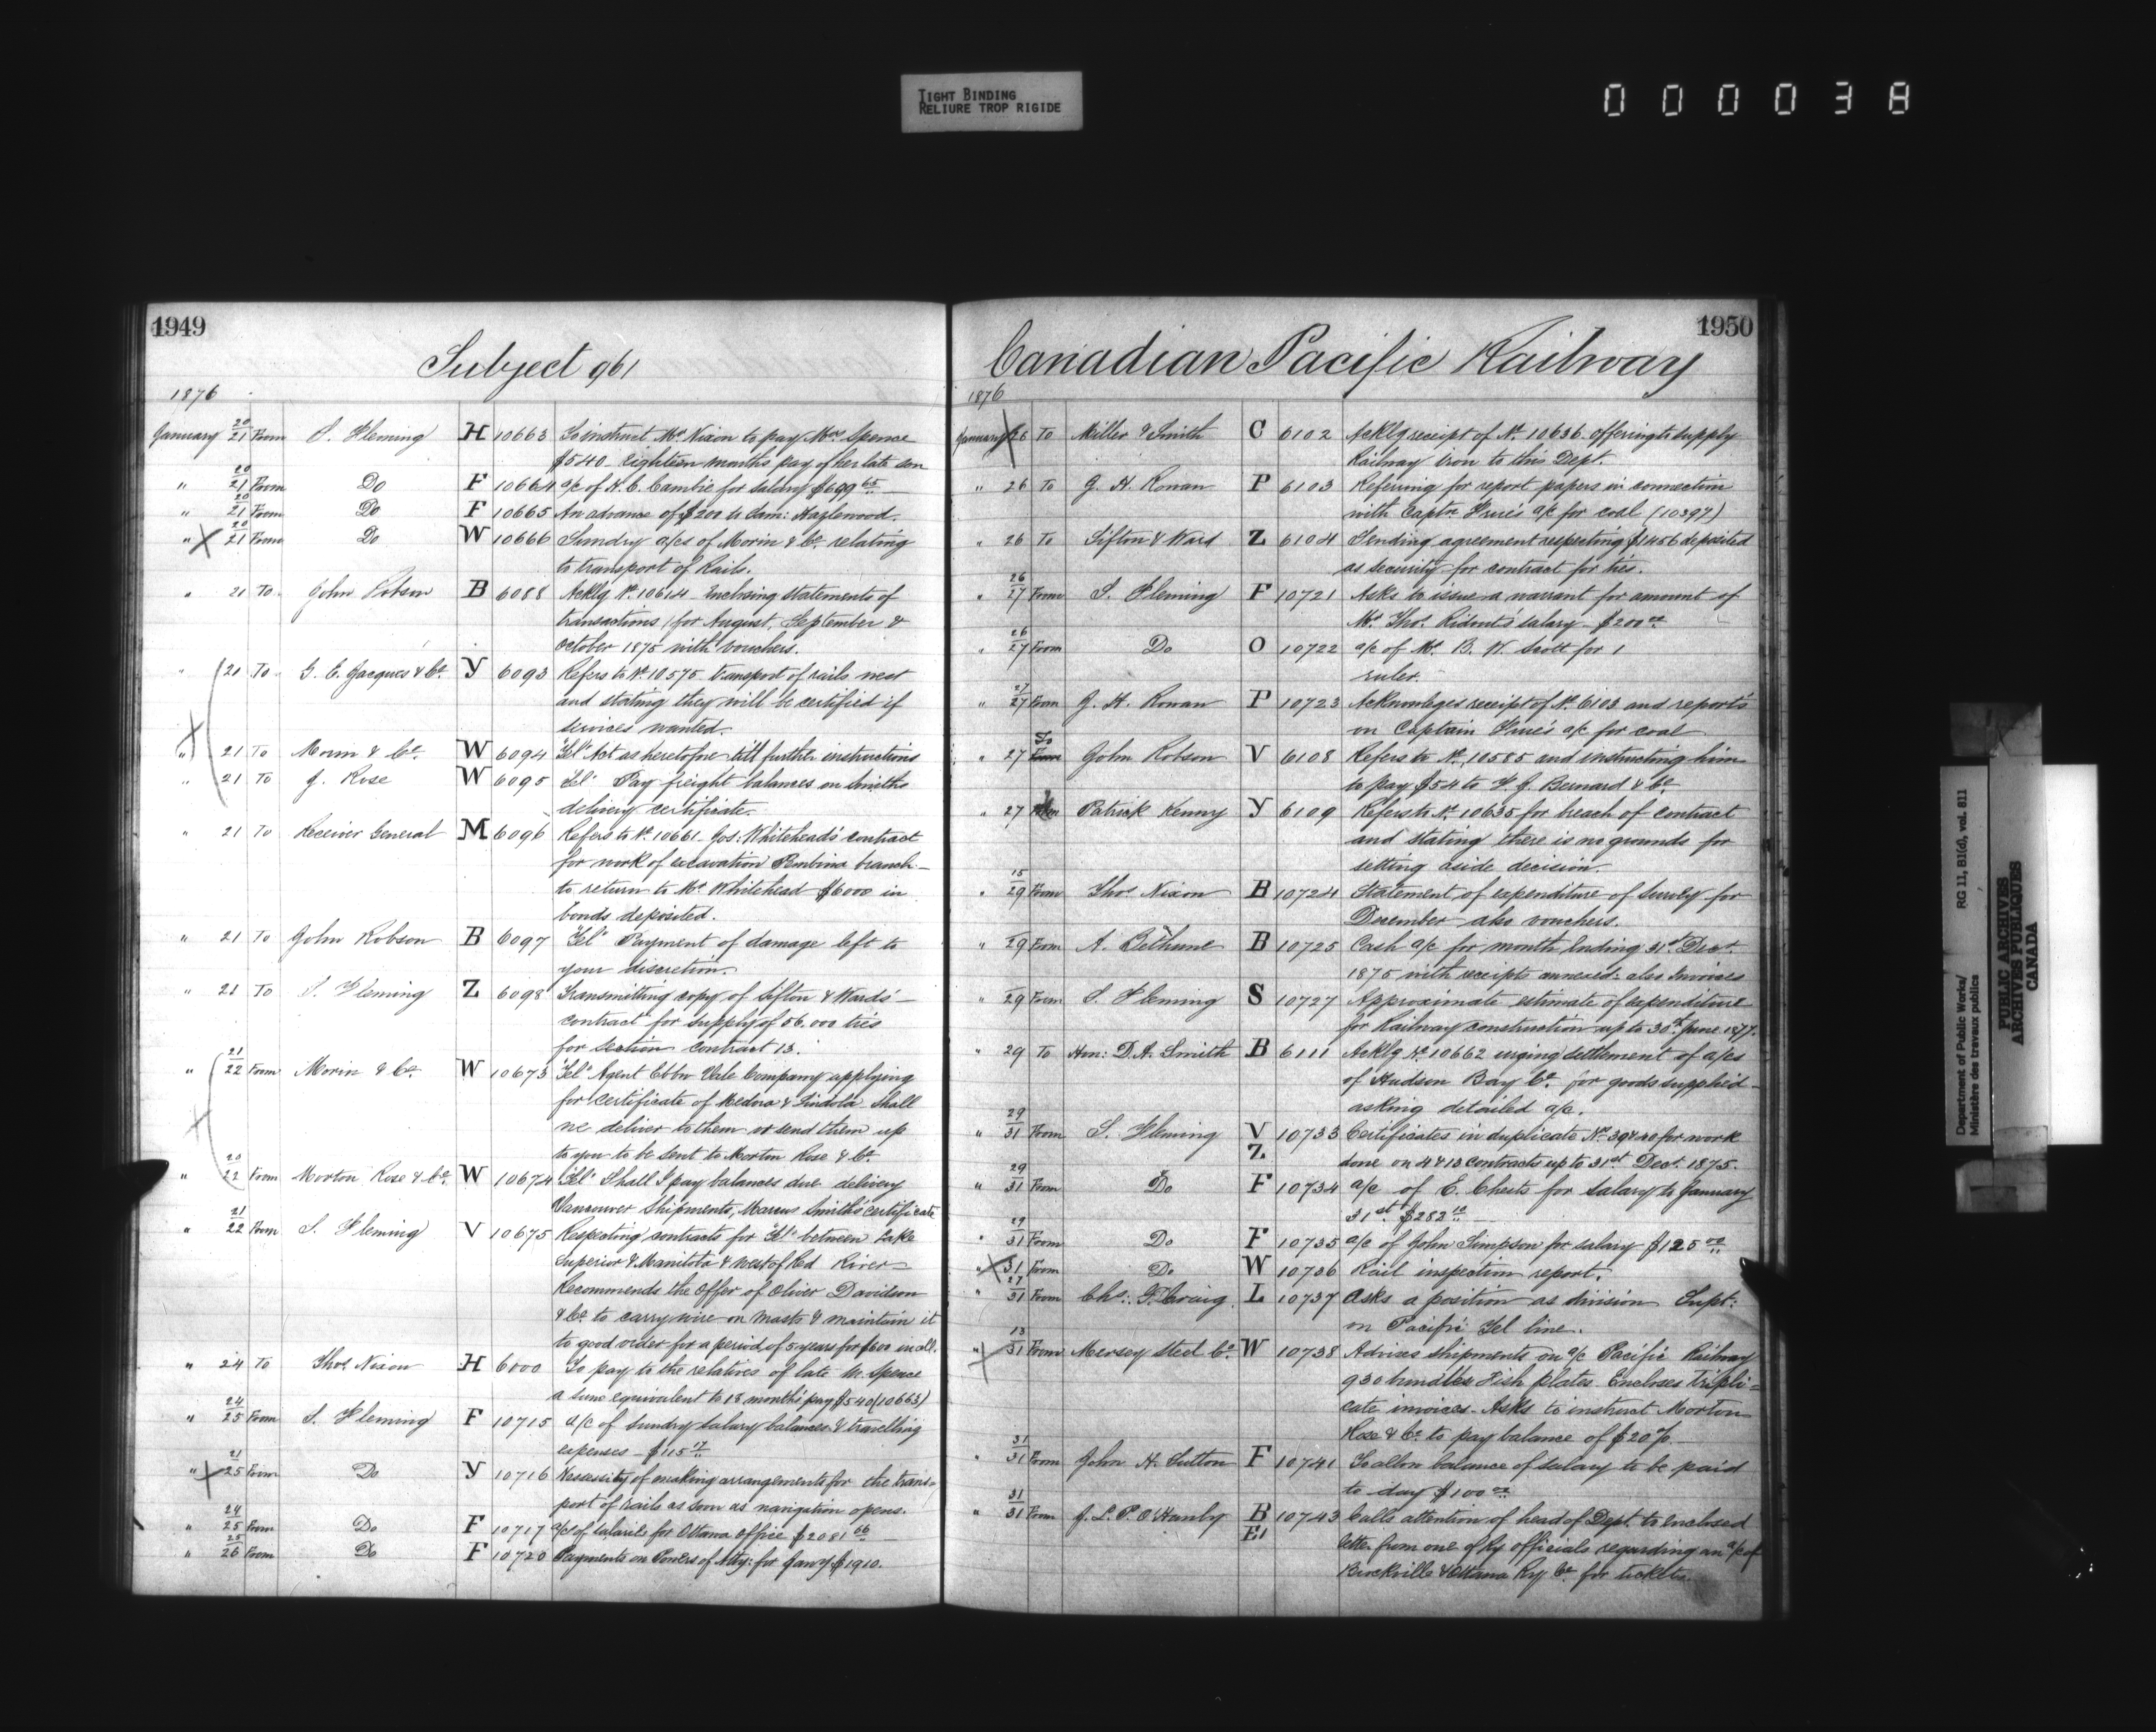 TIGHT BINDING
RELIURE TROP RIGIDE
000038
1949
Subject 961
1876
January 20/21 From S. Fleming H 10663 To instruct Mr Nixon to pay Mrs Spence
$540 - eighteen months pay of her late son
" 20/21 From Do F 10664 a/c of H. C. Cambie for salary $699 65
" 20/21 From Do F 10665 An advance of $200 to Sam: Hazlewood.
" 20/21 From Do W 10666 Sundry a/cs of Morin & Co. relating
to transport of Rails.
" 21 To John Robson B 6088 Acklg No. 10614 - Enclosing statements of
transactions for August, September &
October 1875 with vouchers.
" 21 To G. E. Jacques & Co. Y 6093 Refers to No. 10575 transport of rails west
and stating they will be certified if
services wanted.
" 21 To Morin & Co. W 6094 "Tel" Act as heretofore till further instructions
" 21 To J. Rose W 6095 "Tel" Pay freight balances on Smiths
delivery certificate.
" 21 To Receiver General M 6096 Refers to No. 10661. Jos: Whitehead's contract
for work of excavation Pembina branch -
to return to Mr Whitehead $6000 in
bonds deposited.
" 21 To John Robson B 6097 "Tel" Payment of damage left to
your discretion.
" 21 To S. Fleming Z 6098 Transmitting copy of Sifton & Wards' -
contract for supply of 56.000 ties
for section contract 13.
" 21/22 From Morin & Co. W 10673 "Tel" Agent Ebbw Vale Company applying
for certificate of Medora & Tindola - Shall
we deliver to them or send them up
to you to be sent to Morton Rose & Co.
" 20/22 From Morton Rose & Co. W 10674 "Tel" Shall I pay balances due delivery
Vancouver shipments, Marcus Smiths certificate
" 21/22 From S. Fleming V 10675 Respecting contracts for "Tel" between Lake
Superior & Manitoba & west of Red River -
Recommends the offer of Oliver Davidson
& Co. to carry wire on masts & maintain it
to good order for a period of 5 years for $600 in all.
" 24 To Thos. Nixon H 6000 To pay to the relatives of late M. Spence
a sum equivalent to 18 months' pay $540 (10663)
" 24/25 From S. Fleming F 10715 a/c of sundry salary balances & travelling
expenses - $115
" 21/25 From Do Y 10716 Necessity of making arrangements for the trans=
port of rails as soon as navigation opens.
" 24/25 From Do F 10717 a/c of salaries for Ottawa office $2081 66
" 25/26 From Do F 10720 Payments on Powers of Atty: for Jany $1910.
1950
Canadian Pacific Railway
1876
January 26 To Miller & Smith C 6102 Acklg receipt of No. 10636 offering to supply
Railway Iron to this Dept.
" 26 To G. H. Ronan P 6103 Referring for report papers in connection
with Captn a/c for coal (10397)
" 26 To Sifton & Ward Z 6104 Sending agreement respecting $1456 deposited
as security for contract for ties.
" 26/27 From S. Fleming F 10721 Asks to issue a warrant for amount of
Mr Thos. Ridout's salary - $200
" 26/27 From Do O 10722 a/c of Mr B. W. Scott for 1
ruler.
" 27/27 From G. H. Ronan P 10723 Acknowleges receipt of No. 6103 and reports
on Captain a/c for coal
" 27 To John Robson V 6108 Refers to No. 10585 and instructing him
to pay $54 to F. J. Bernard & Co.
" 27 Patrick Kenny Y 6109 Refers to No. 10635 for breach of contract
and stating there is no grounds for
setting aside decision.
" 15/29 From Thos. Nixon B 10724 Statement of expenditure of Survey for
December also vouchers.
" 29 From A. Bethune B 10725 Cash a/c for month Ending 31st Decr.
1875 with receipts annexed: also Invoices
" 29 From S. Fleming S 10727 Approximate estimate of expenditure
for Railway construction up to 30th June 1877.
" 29 To Hon: D. A. Smith B 6111 Acklg No. 10662 urging settlement of a/cs
of Hudson Bay Co. for goods supplied -
asking detailed a/c.
" 29/31 From S. Fleming V Z 10733 Certificates in duplicate No. 39 & 40 for work
done on 4 & 13 contracts up to 31st Decr. 1875.
" 29/31 From Do F 10734 a/c of E. Chests for salary to January
31st. $282
" 29/31 From Do F 10735 a/c of John Simpson for salary $125 00
" 31 From Do W 10736 Rail inspection report.
" 27/31 From Chs: Craig L 10737 Asks a position as division Supt:
on Pacific Tel line.
" 13/31 From Mersey Steel Co. W 10738 Advises shipments on a/c Pacific Railway
930 bundles Fish plates. Encloses tripli=
cate invoices. Asks to instruct Morton
Rose & Co. to pay balance of $20%.
" 31/31 From John H. Sutton F 10741 To allow balance of salary to be paid
to day $100
" 31/31 From J. L. P. O'Hanly B E1 10743 Calls attention of head of Dept. to Enclosed
letter from one of Ry officials regarding an a/c of
Brockville & Ottawa Ry Co. for tickets.
Department of Public Works/
Ministère des travaux publics
RG 11, B1(d), vol. 811
PUBLIC ARCHIVES
ARCHIVES PUBLIQUES
CANADA